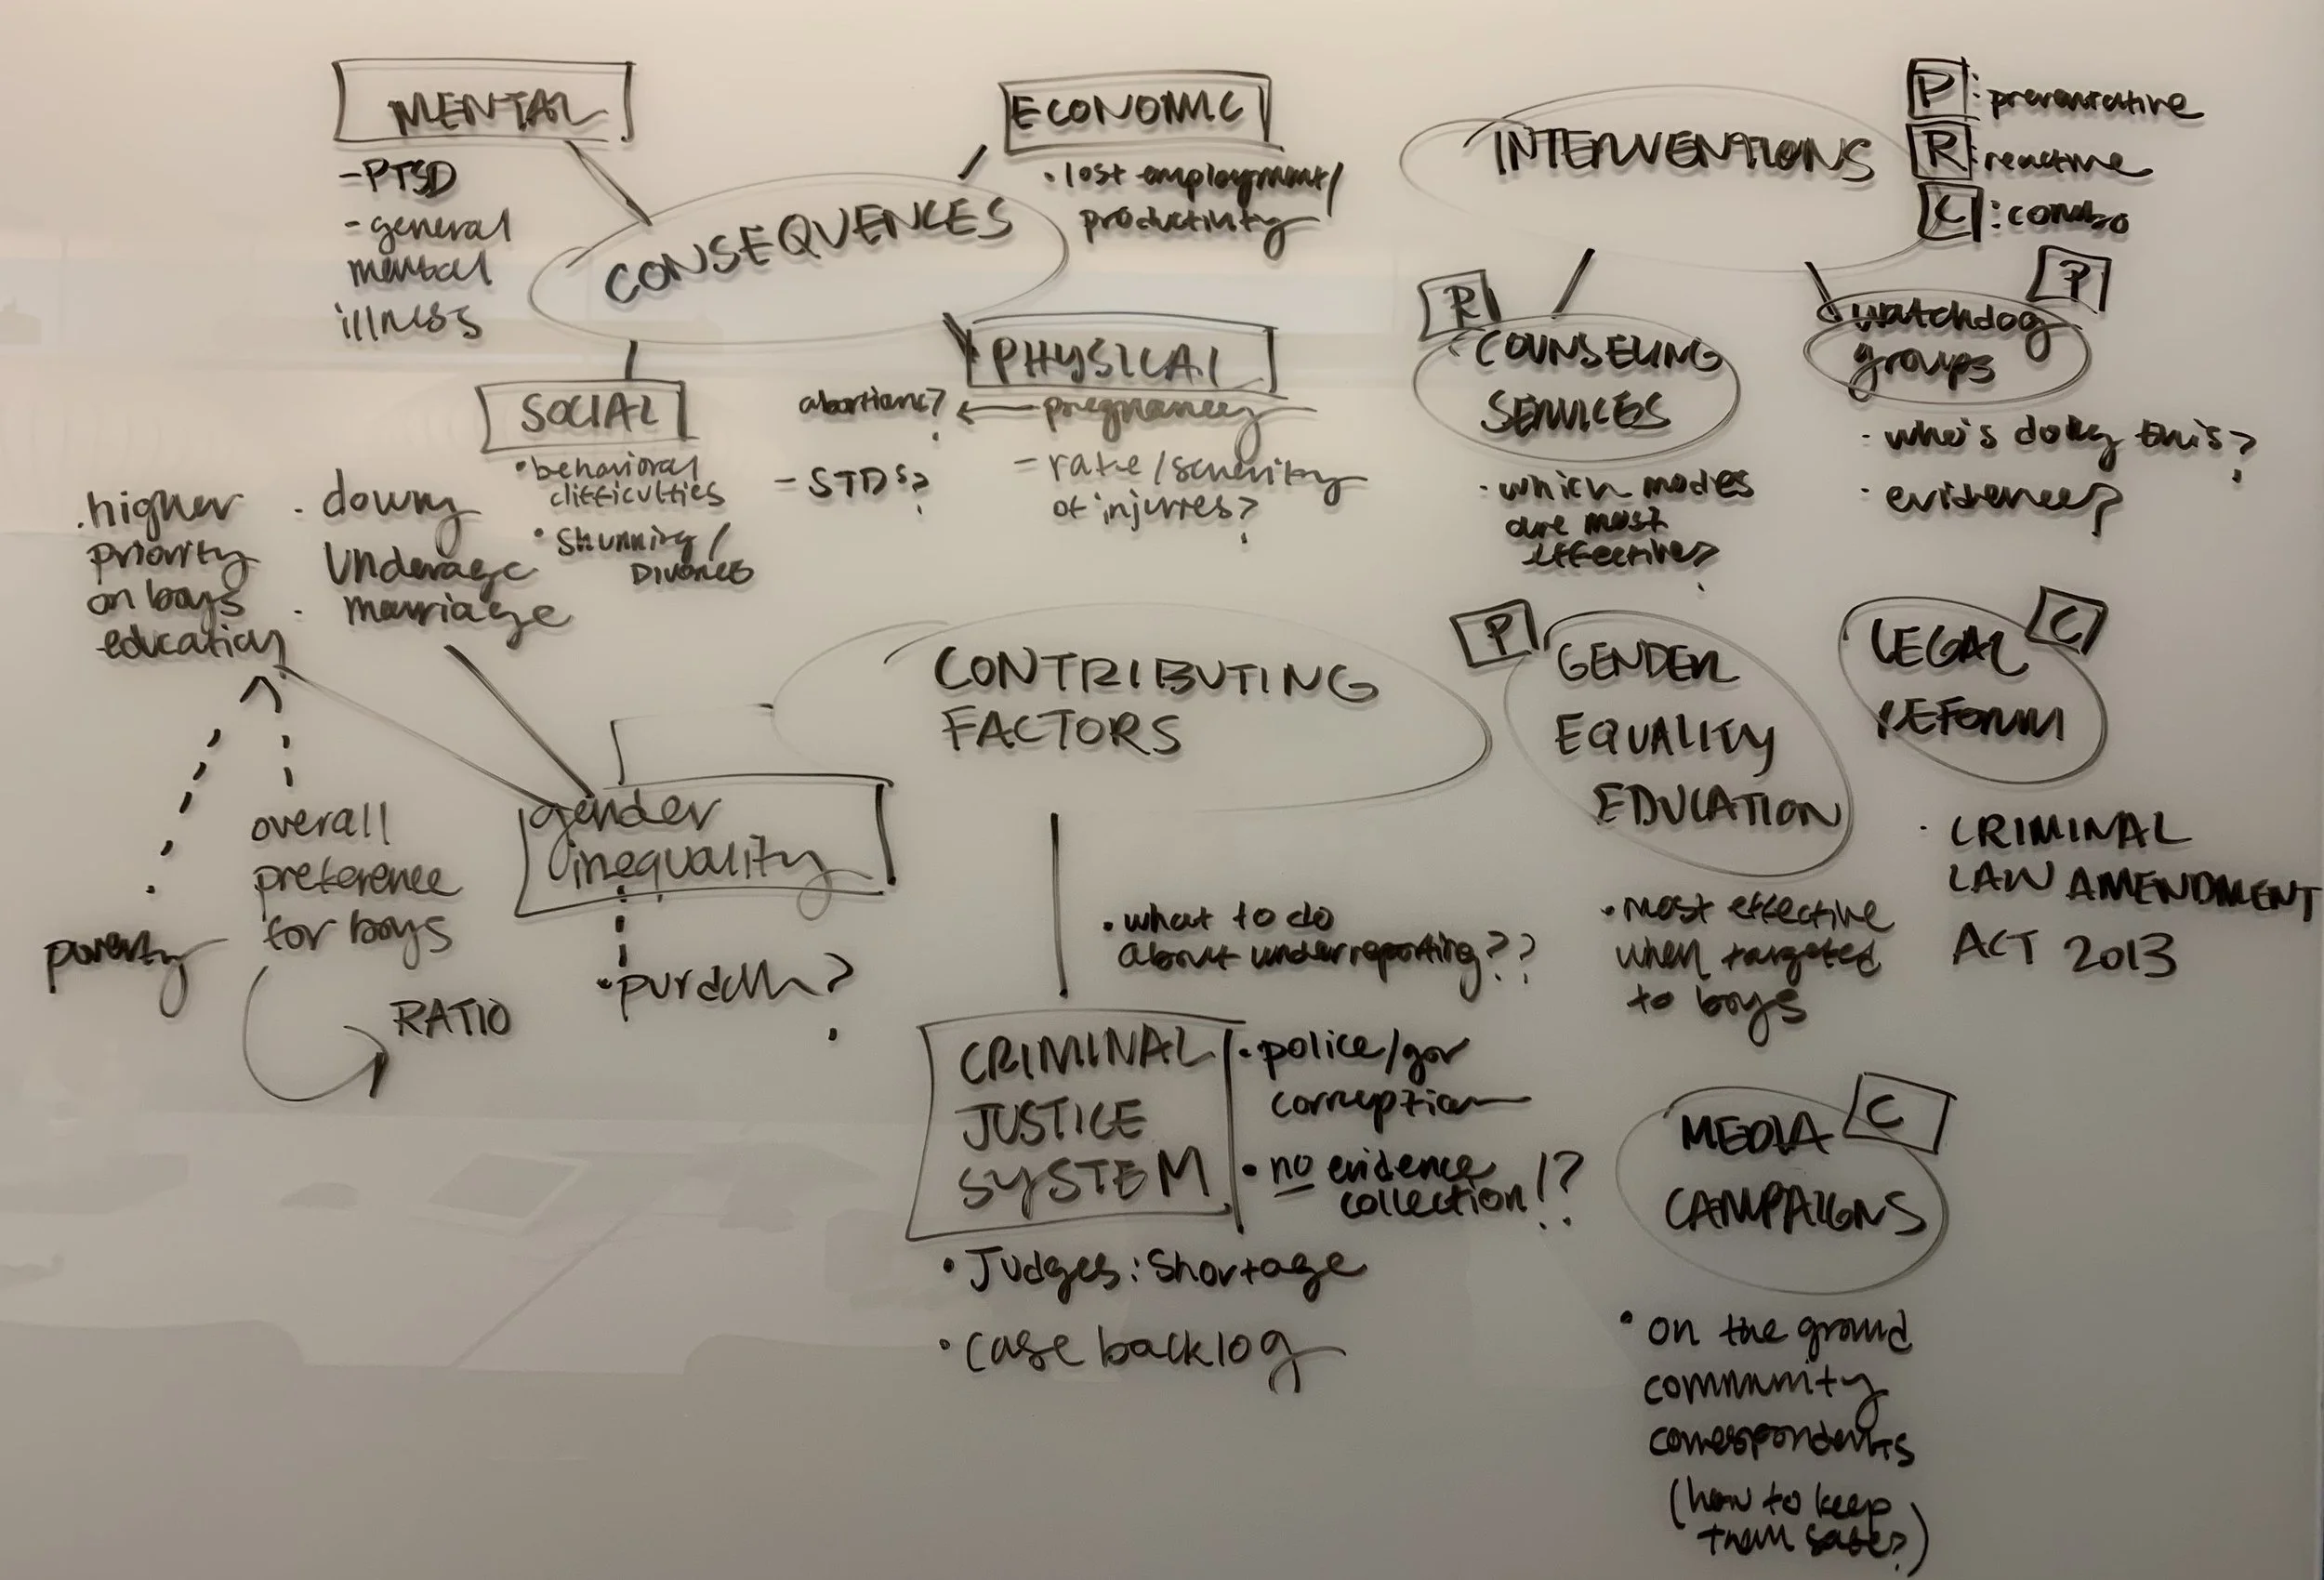 MENTAL
-PTSD
-general
mental
illness
CONSEQUENCES
ECONOMIC
• lost employment/
productivity
SOCIAL
• behavioral
difficulties
• Shunning /
DIVORCES
PHYSICAL
abortions? ← pregnancy
- STDs?
- rate/severity
of injuries?
INTERVENTIONS
P : preventative
R : reactive
C : combo
R
COUNSELING
SERVICES
• which modes
are most
effective?
P
watchdog
groups
• who's doing this?
• evidence?
P
GENDER
EQUALITY
EDUCATION
• most effective
when targeted
to boys
C
LEGAL
REFORM
• CRIMINAL
LAW AMENDMENT
ACT 2013
C
MEDIA
CAMPAIGNS
• on the ground
community
correspondents
(how to keep
them safe?)
CONTRIBUTING
FACTORS
gender
inequality
• higher
priority
on boys
education
• dowry
• Underage
marriage
poverty
overall
preference
for boys
RATIO
• purdah?
• what to do
about underreporting??
CRIMINAL
JUSTICE
SYSTEM
• police/gov
corruption
• no evidence
collection!?
• Judges: Shortage
• case backlog